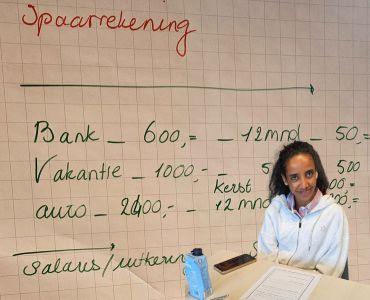 Spaarrekening
Bank – 600,= – 12 mnd – 50,=
Vakantie – 1000,- – 5 500
kerst 00,=
auto – 2400,- – 12 mnd 0,=
salaris/uitkerin